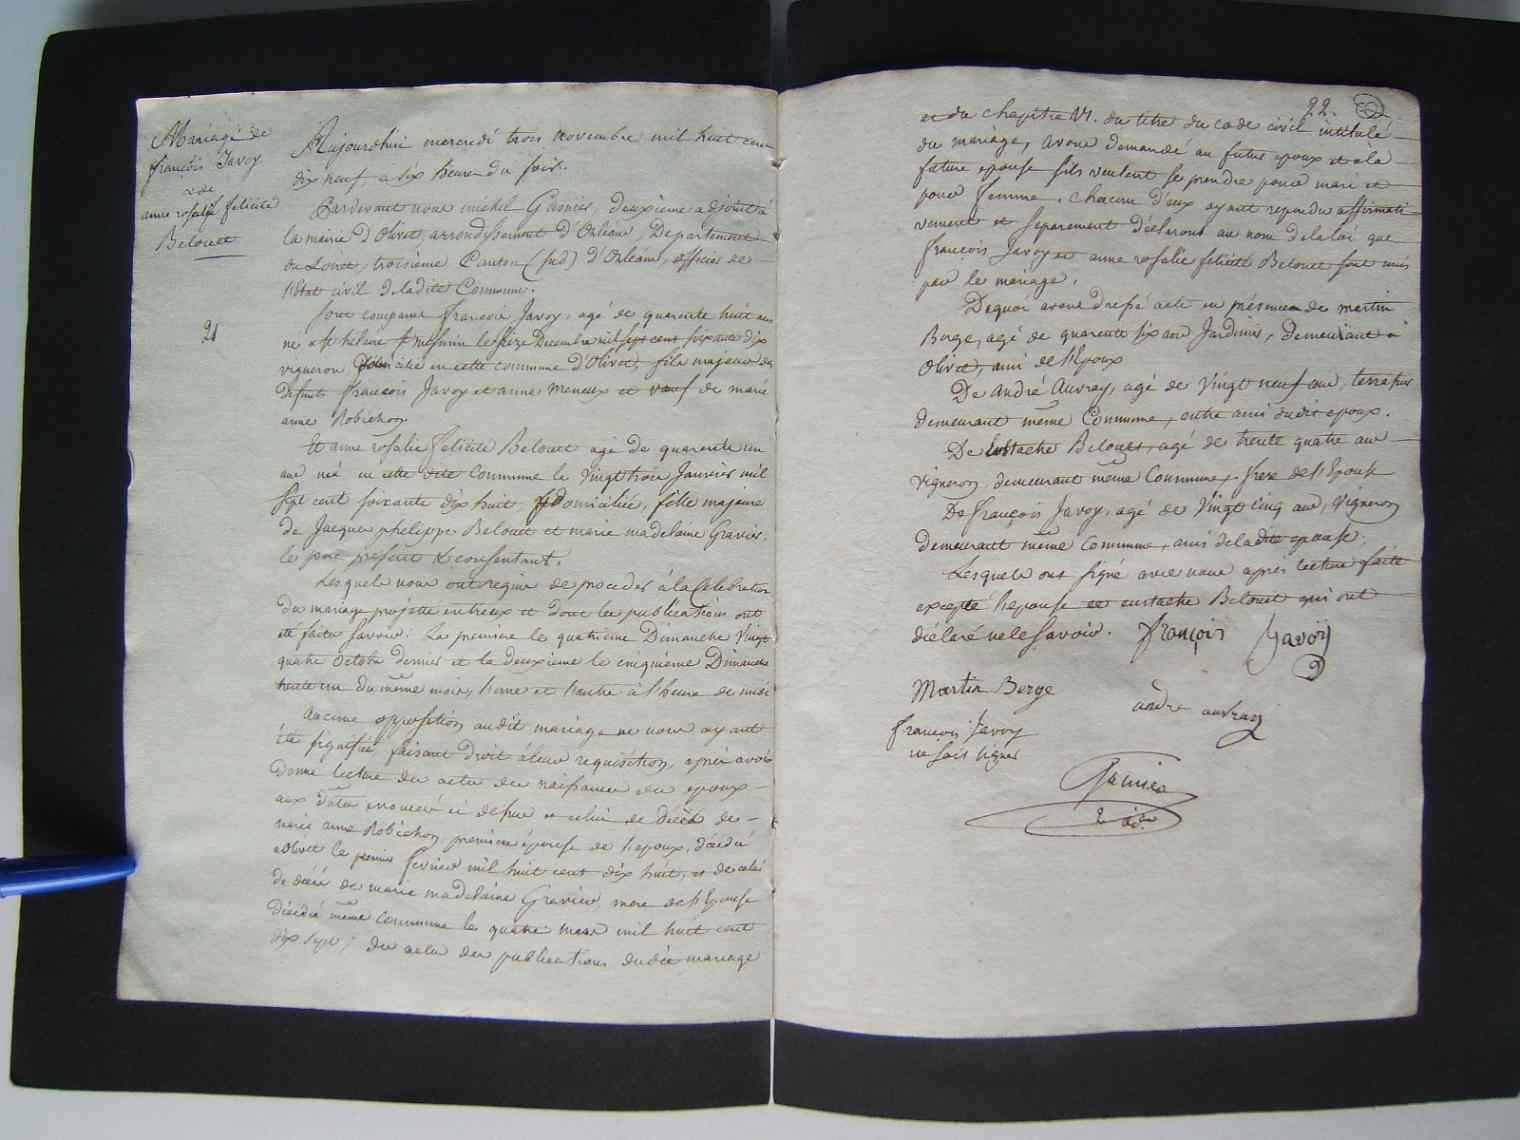 Mariage de
françois Javoy
et de
anne rosalie felicité
Belouet
21
Aujourdhui mercredi trois novembre mil huit cent
dix neuf, à six heures du soir.
Pardevant nous michel Garnier, deuxieme adjoint à
la mairie d'Olivet, arrondissement d'Orléans, Departement
du Loiret, troisième Canton (sud) d'Orléans, officier de
l'Etat civil de ladite Commune.
Sont comparus françois Javoy, agé de quarante huit ans
né a St hilaire St mesmin le seize Decembre mil sept cent soixante dix
vigneron domicilié en cette commune d'Olivet, fils majeur des
defunts françois Javoy et anne meneux et veuf de marie
anne Robichon
Et anne rosalie felicité Belouet agé de quarante un
ans né en cette dite commune le vingt trois Janvier mil
sept cent soixante dix huit, y domiciliée, fille majeure
de Jacques philippe Belouet et marie madelaine Gravier,
le pere present & consentant.
Lesquels nous ont requis de proceder à la Celebration
du mariage projetté entreux et dont les publications ont
été faites Savoir: La premiere le quatrieme Dimanche Vingt
quatre Octobre dernier et la deuxieme le cinquième Dimanche
trente un du même mois, l'une et l'autre à l'heure de midi
Aucune opposition audit mariage ne nous ayant
été signifiée faisant droit à leur requisition, après avoir
donné lecture des actes des naissances des epoux
aux dates enoncé ci dessus et celui de décès de
marie anne Robichon, premiere épouse de l'epoux, décédé
a Olivet le premier fevrier mil huit cent dix huit, et de celui
de décés de marie madelaine Gravier, mere de l'Epouse
décédée même commune le quatre mars mil huit cent
dix sept; des actes des publications dudit mariage
22.
et du chapitre VI. du titre du code civil intitulé
du mariage, avons demandé au futur epoux et à la
future epouse s'ils veulent se prendre pour mari et
pour femme. chacun d'eux ayant repondu affirmati-
vement et separement déclarons au nom de la loi que
françois Javoy et anne rosalie felicité Belouet sont unis
par le mariage.
De quoi avons dressé acte en présence de martin
Berge, agé de quarante six ans Jardinier, demeurant à
Olivet, ami de l'Epoux
De André Auvray, agé de vingt neuf ans, terrassier
demeurant même Commune, autre ami dudit epoux.
De Eustache Belouet, agé de trente quatre ans
vigneron demeurant même Commune, frere de l'Epouse
De françois Javoy, agé de vingt cinq ans, vigneron
demeurant même Commune, ami de ladite epouse.
Lesquels ont signé avec nous après lecture faite
excepté l'epouse et eustache Belouet qui ont
déclaré ne le savoir. françois Javoÿ
Martin Berge
andre auvray
françois Javoy
ne sais signer
Garnier